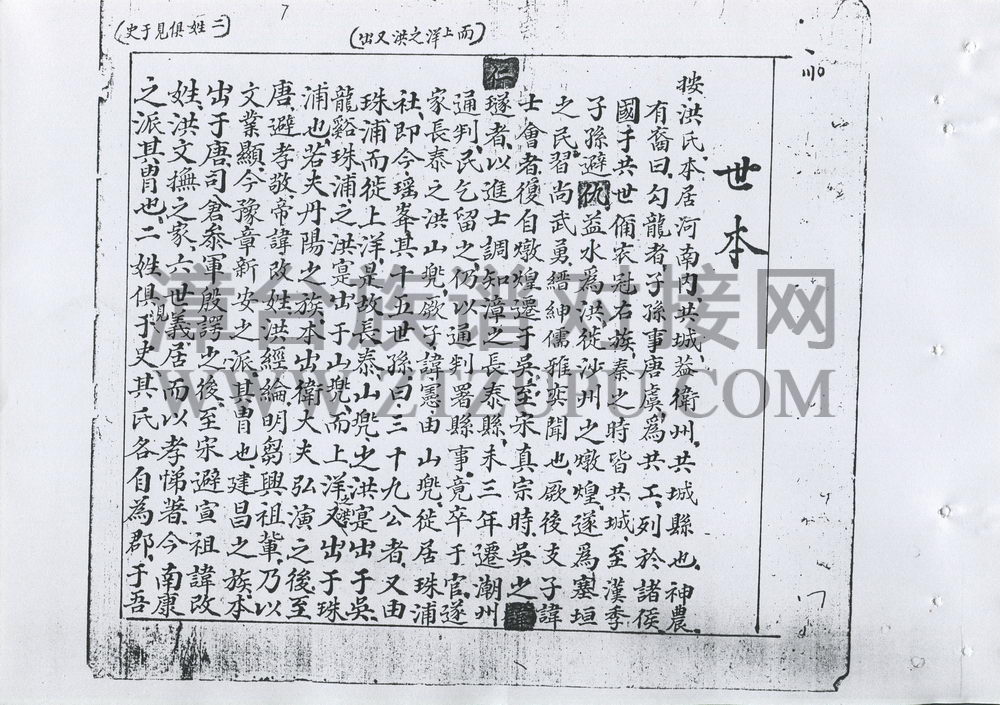 世本
按洪氏本居河南内共城益衛州共城縣也神農
有裔曰勾龍者子孫事唐虞為共工列於諸侯
國于共世備衣冠右族秦之時皆共城至漢季
子孫避仇益水為洪徙沙州之燉煌遂為塞垣
之民習尚武勇縉紳儒雅奕聞也厥後支子諱
士會者復自燉煌遷于吳至宋真宗時吳之
仁璲者以進士調知漳之長泰縣未三年遷潮州
通判民乞留之仍以通判署縣事竟卒于官遂
家長泰之洪山兜厥子諱憲由山兜徙居珠浦
社即今瑤峯其十五世孫曰三十九公者又由
珠浦而徙上洋是故長泰山兜之洪寔出于吳
龍谿珠浦之洪寔出于山兜而上洋之洪又出于珠
浦也若夫丹陽之族本出衛大夫弘演之後至
唐避孝敬帝諱改姓洪經綸明芻興祖輩乃以
文業顯今豫章新安之派其胄也建昌之族本
出于唐司倉叅軍殷諤之後至宋避宣祖諱改
姓洪文撫之家六世義居而以孝悌著今南康
之派其胄也二姓俱見于史其氏各自為郡于吾
(而上洋之洪又出)
(二姓俱見于史)
漳台族谱对接网
WWW.ZTZUPU.COM